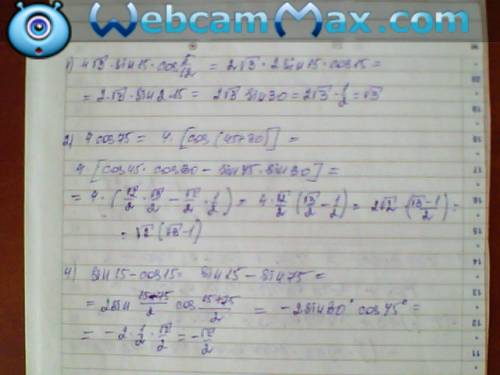 WebcamMax.com
1) 4√3 · sin15 · cos π/12 = 2√3 · 2sin15 · cos15 =
= 2√3 · sin2·15 = 2√3 · sin30 = 2√3 · 1/2 = √3
2) 4cos75 = 4 · [cos(45+30)] =
4 [cos45 · cos30 − sin45 · sin30] =
= 4 · (√2/2 · √3/2 − √2/2 · 1/2) = 4 · √2/2 (√3/2 − 1/2) = 2√2 · (√3−1/2) =
= √2 (√3−1)
4) sin15 − cos15 = sin15 − sin75 =
= 2sin 15−75/2 cos 15+75/2 = −2sin30° cos45° =
= −2 · 1/2 · √2/2 = −√2/2